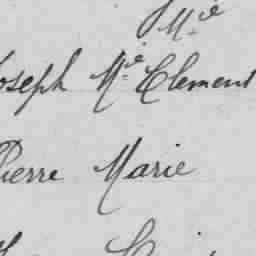 Mie
Joseph Mie Clement
Pierre Marie